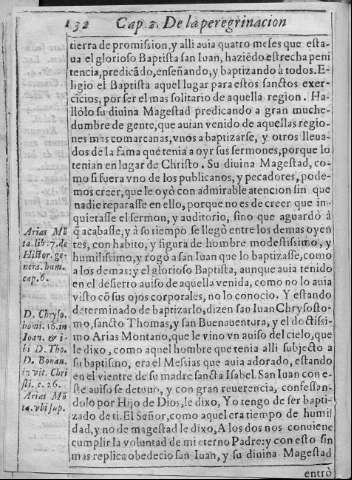 132 Cap. 2. De la peregrinacion
tierra de promision, y alli auia quatro meses que esta-
ua el glorioso Baptista san Iuan, haziẽdo estrecha peni
tencia, predicãdo, enseñando, y baptizando à todos. E-
ligio el Baptista aquel lugar para estos sanctos exer-
cicios, por ser el mas solitario de aquella region. Ha-
llòlo su diuina Magestad predicando a gran muche-
dumbre de gente, que auian venido de aquellas regio-
nes mas comarcanas, vnos a baptizarse, y otros lleua-
dos de la fama que tenia a oyr sus sermones, porque lo
tenian en lugar de Christo. Su diuina Magestad, co-
mo si fuera vno de los publicanos, y pecadores, pode-
mos creer, que le oyò con admirable atencion sin que
nadie reparasse en ello, porque no es de creer que in-
quietasse el sermon, y auditorio, sino que aguardò à
q̃ acabasse, y à so tiempo se llegò entre los demas oyen
tes, con habito, y figura de hombre modestissimo, y
humilissimo, y rogò a san Iuan que lo baptizasse, como
a los demas: y el glorioso Baptista, aunque auia tenido
en el desierto auiso de aquella venida, como no lo auia
visto cõ sus ojos corporales, no lo conocio. Y estando
determinado de baptizarlo, dizen san Iuan Chrysosto-
mo, sancto Thomas, y san Buenauentura, y el doctissi-
mo Arias Montano, que le vino vn auiso del cielo, que
le dixo, como aquel hombre que tenia alli subjecto a
su baptismo, era el Messias que auia adorado, estando
en el vientre de su madre sancta Isabel. San Iuan con e-
ste auiso se detuuo, y con gran reuerencia, confessan-
dolo por Hijo de Dios, le dixo, Yo tengo de ser bapti-
zado de ti. El Señor, como aquel era tiempo de humil
dad, y no de magestad le dixo, A los dos nos conuiene
cumplir la voluntad de mi eterno Padre: y con esto sin
mas replica obedecio san Iuan, y su diuina Magestad
entrò
Arias Mõ
ta. lib. 7. de
Histor. ge-
nera. hum.
cap. 8.
D. Chryso.
homi. 16. in
Ioan. & i-
bi D. Tho.
D. Bonau.
in vit. Chri
sti. c. 26.
Arias Mõ
ta. vbi sup.